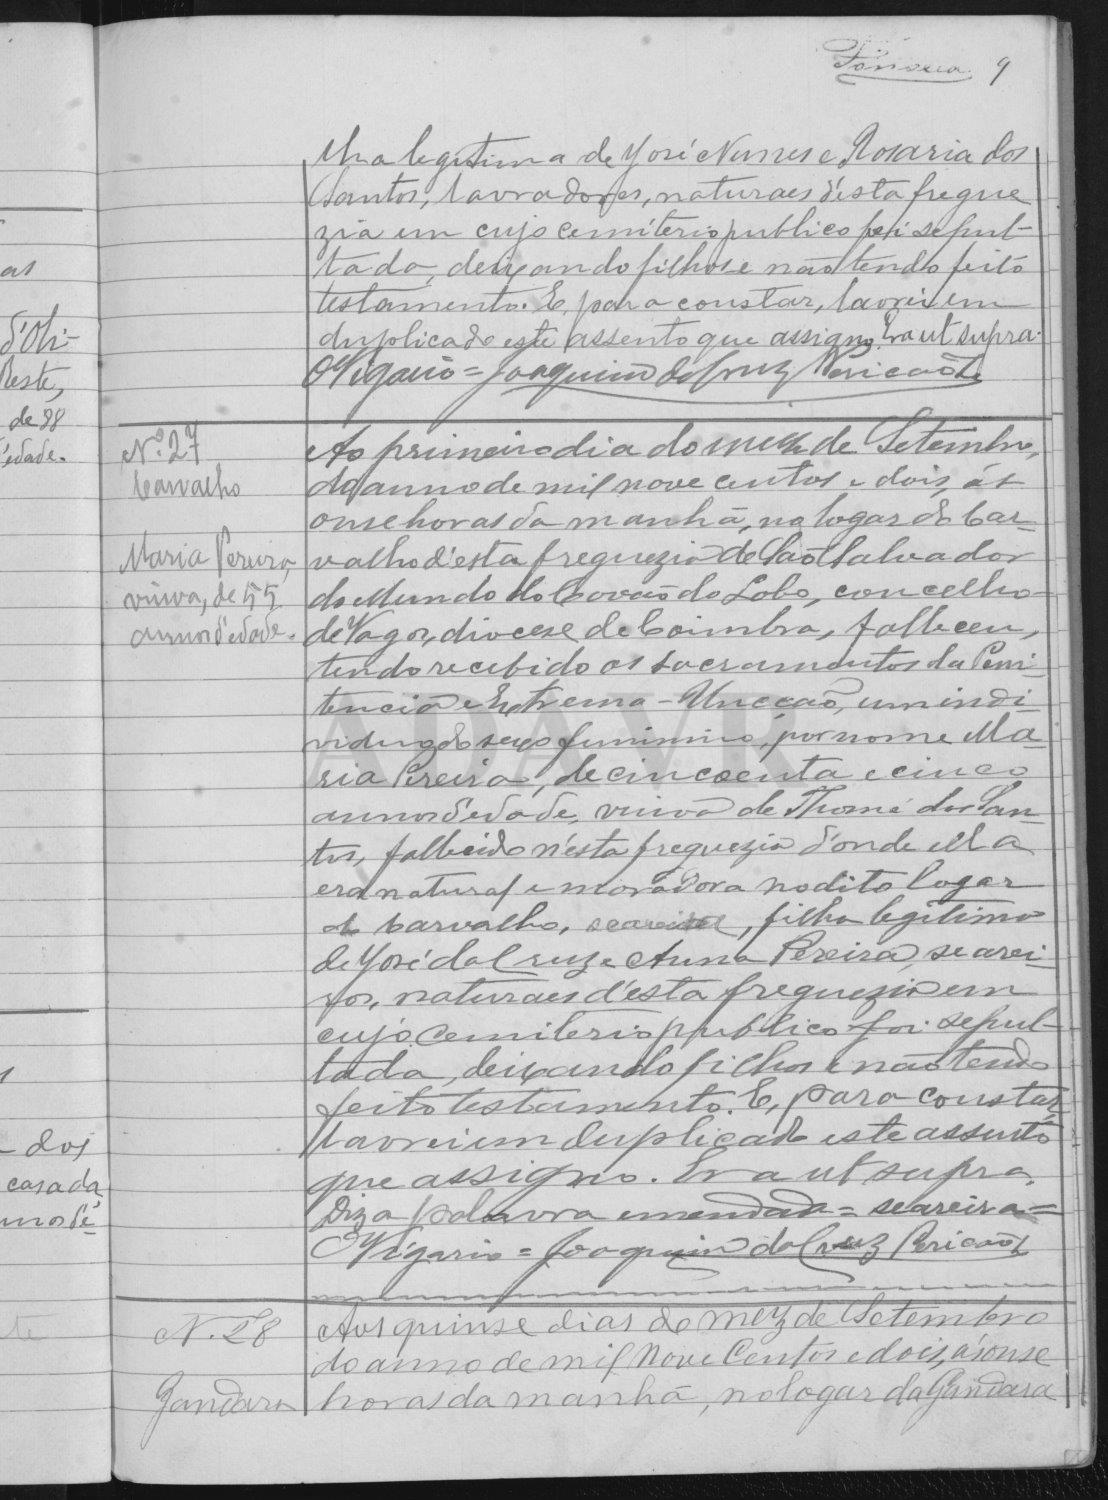 Fonseca 9
lha legitima de José Nunes e Rosaria dos
Santos, lavradores, naturaes d'esta fregue
zia em cujo cemiterio publico foi sepul-
tada, deixando filhos e não tendo feito
testamento. E, para constar, lavrei em
duplicado este assento que assigno. Era ut supra.
O Vigario = Joaquim da Cruz Pericão
Nº 27
Carvalho
Maria Pereira,
viuva, de 55
annos d'edade.
Ao primeiro dia do mez de Setembro,
do anno de mil nove centos e dois, ás
onse horas da manhã, no logar do Car-
valho d'esta freguezia de São Salvador
do Mundo do Covão do Lobo, concelho
de Vagos, diocese de Coimbra, falleceu,
tendo recebido os sacramentos da Peni-
tencia e Extrema-Uncção, um indi-
viduo do sexo feminino, por nome Ma-
ria Pereira, de cincoenta e cinco
annos d'edade, viuva de Thomé dos San-
tos, fallecido n'esta freguezia d'onde ella
era natural e moradora no dito logar
do Carvalho, seareira, filha legitima
de José da Cruz e Anna Pereira, searei-
ros, naturaes d'esta freguezia em
cujo cemiterio publico foi sepul-
tada, deixando filhos e não tendo
feito testamento. E, para constar,
lavrei em duplicado este assento
que assigno. Era ut supra.
Diz a palavra emendada = seareira =
O Vigario = Joaquim da Cruz Pericão
N. 28
Gandara
Aos quinse dias do mez de Setembro
do anno de mil nove centos e dois, ás onse
horas da manhã, no logar da Gandara
as
d'Oli-
Reste,
de 88
d'edade.
dos
casada
annos d'e-
te
ADAVR